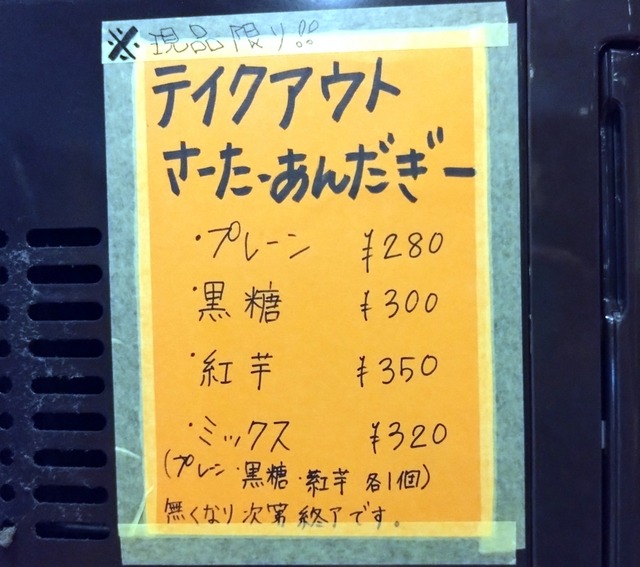 ※現品限り!!
テイクアウト
さーたーあんだぎー
・プレーン ¥280
・黒糖 ¥300
・紅芋 ¥350
・ミックス ¥320
(プレーン・黒糖・紅芋 各1個)
無くなり次第終了です。